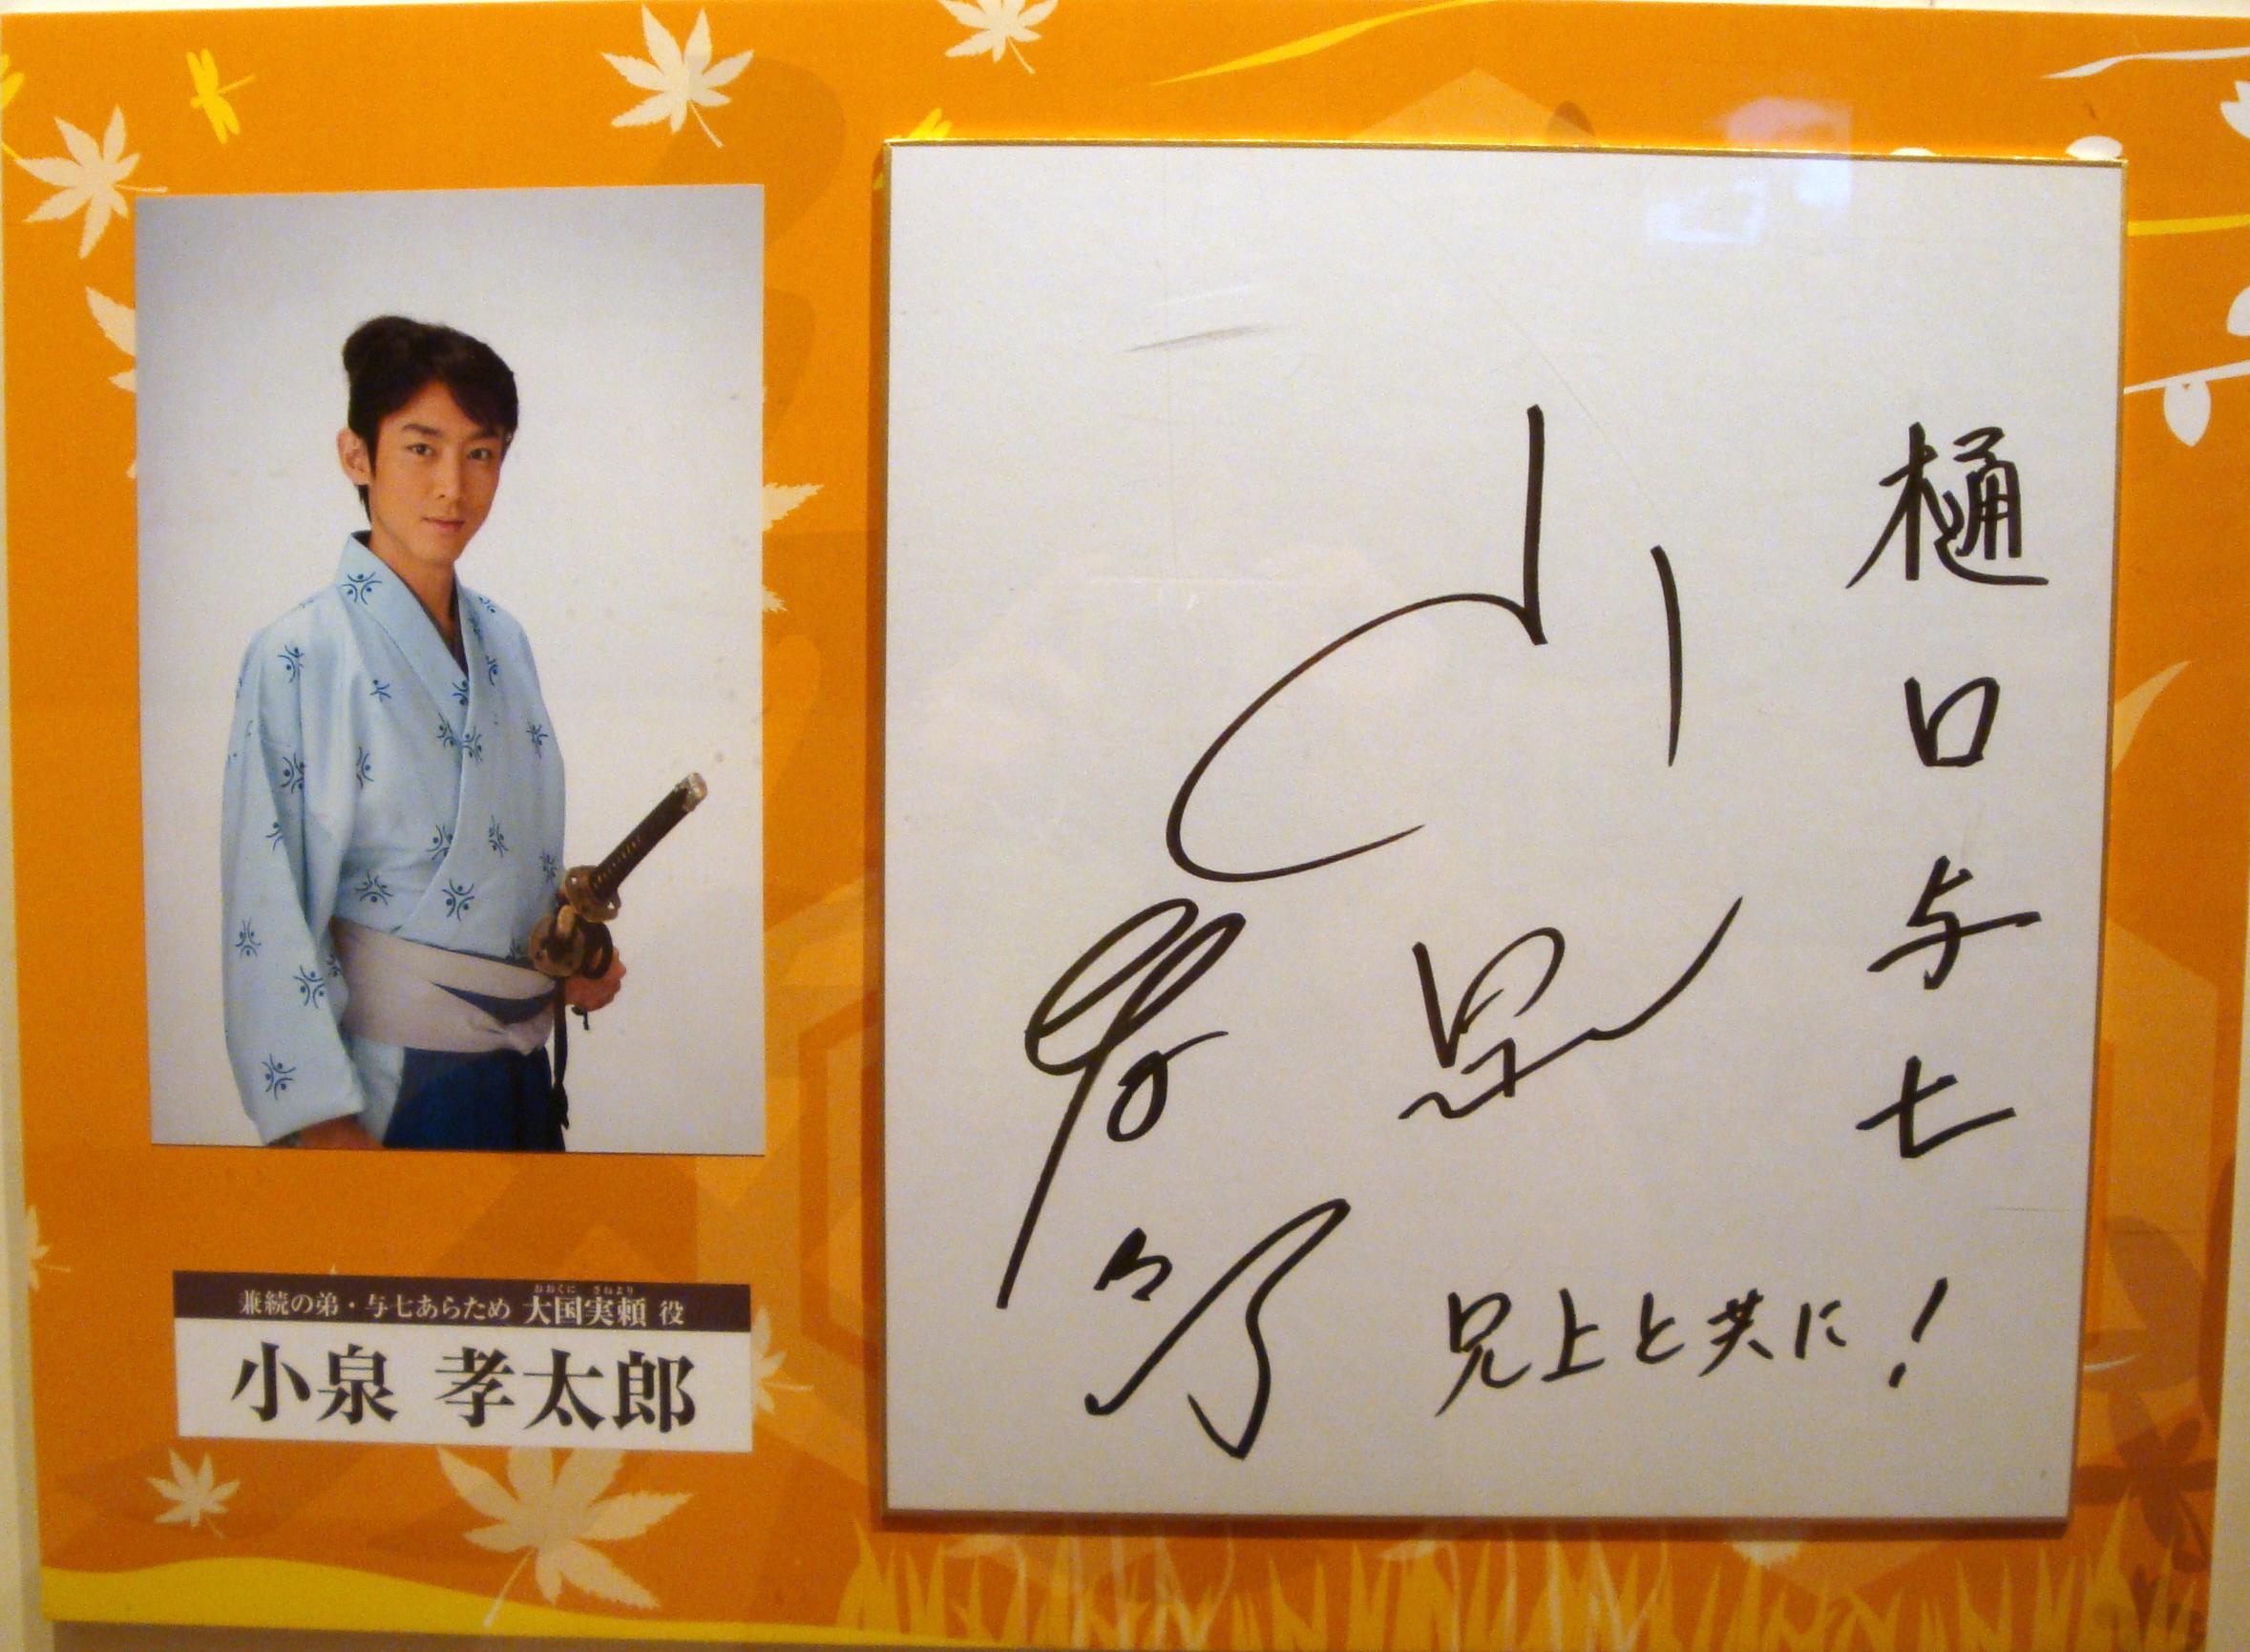 おおくに さねより
兼続の弟・与七あらため 大国実頼 役
小泉 孝太郎
樋口与七
小泉
孝太郎
兄上と共に!